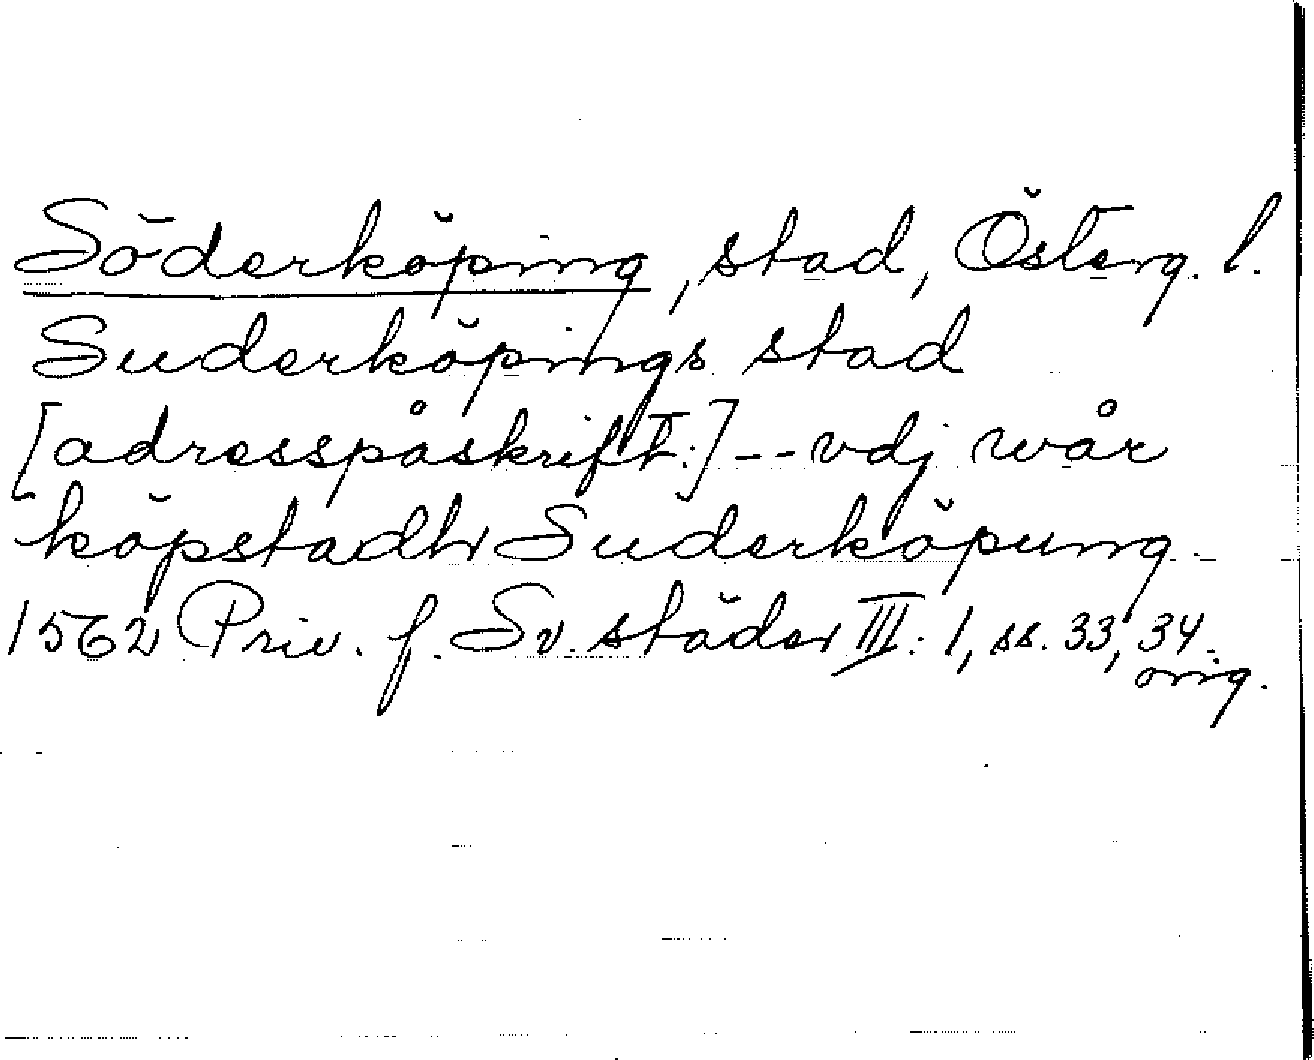 Söderköping, stad, Österg. l.
Suderköpings stad
[adresspåskrift:] -- vdj wår
köpstadh Suderköpung
1562 Priv. f. Sv. städer III: 1, ss. 33, 34.
orig.